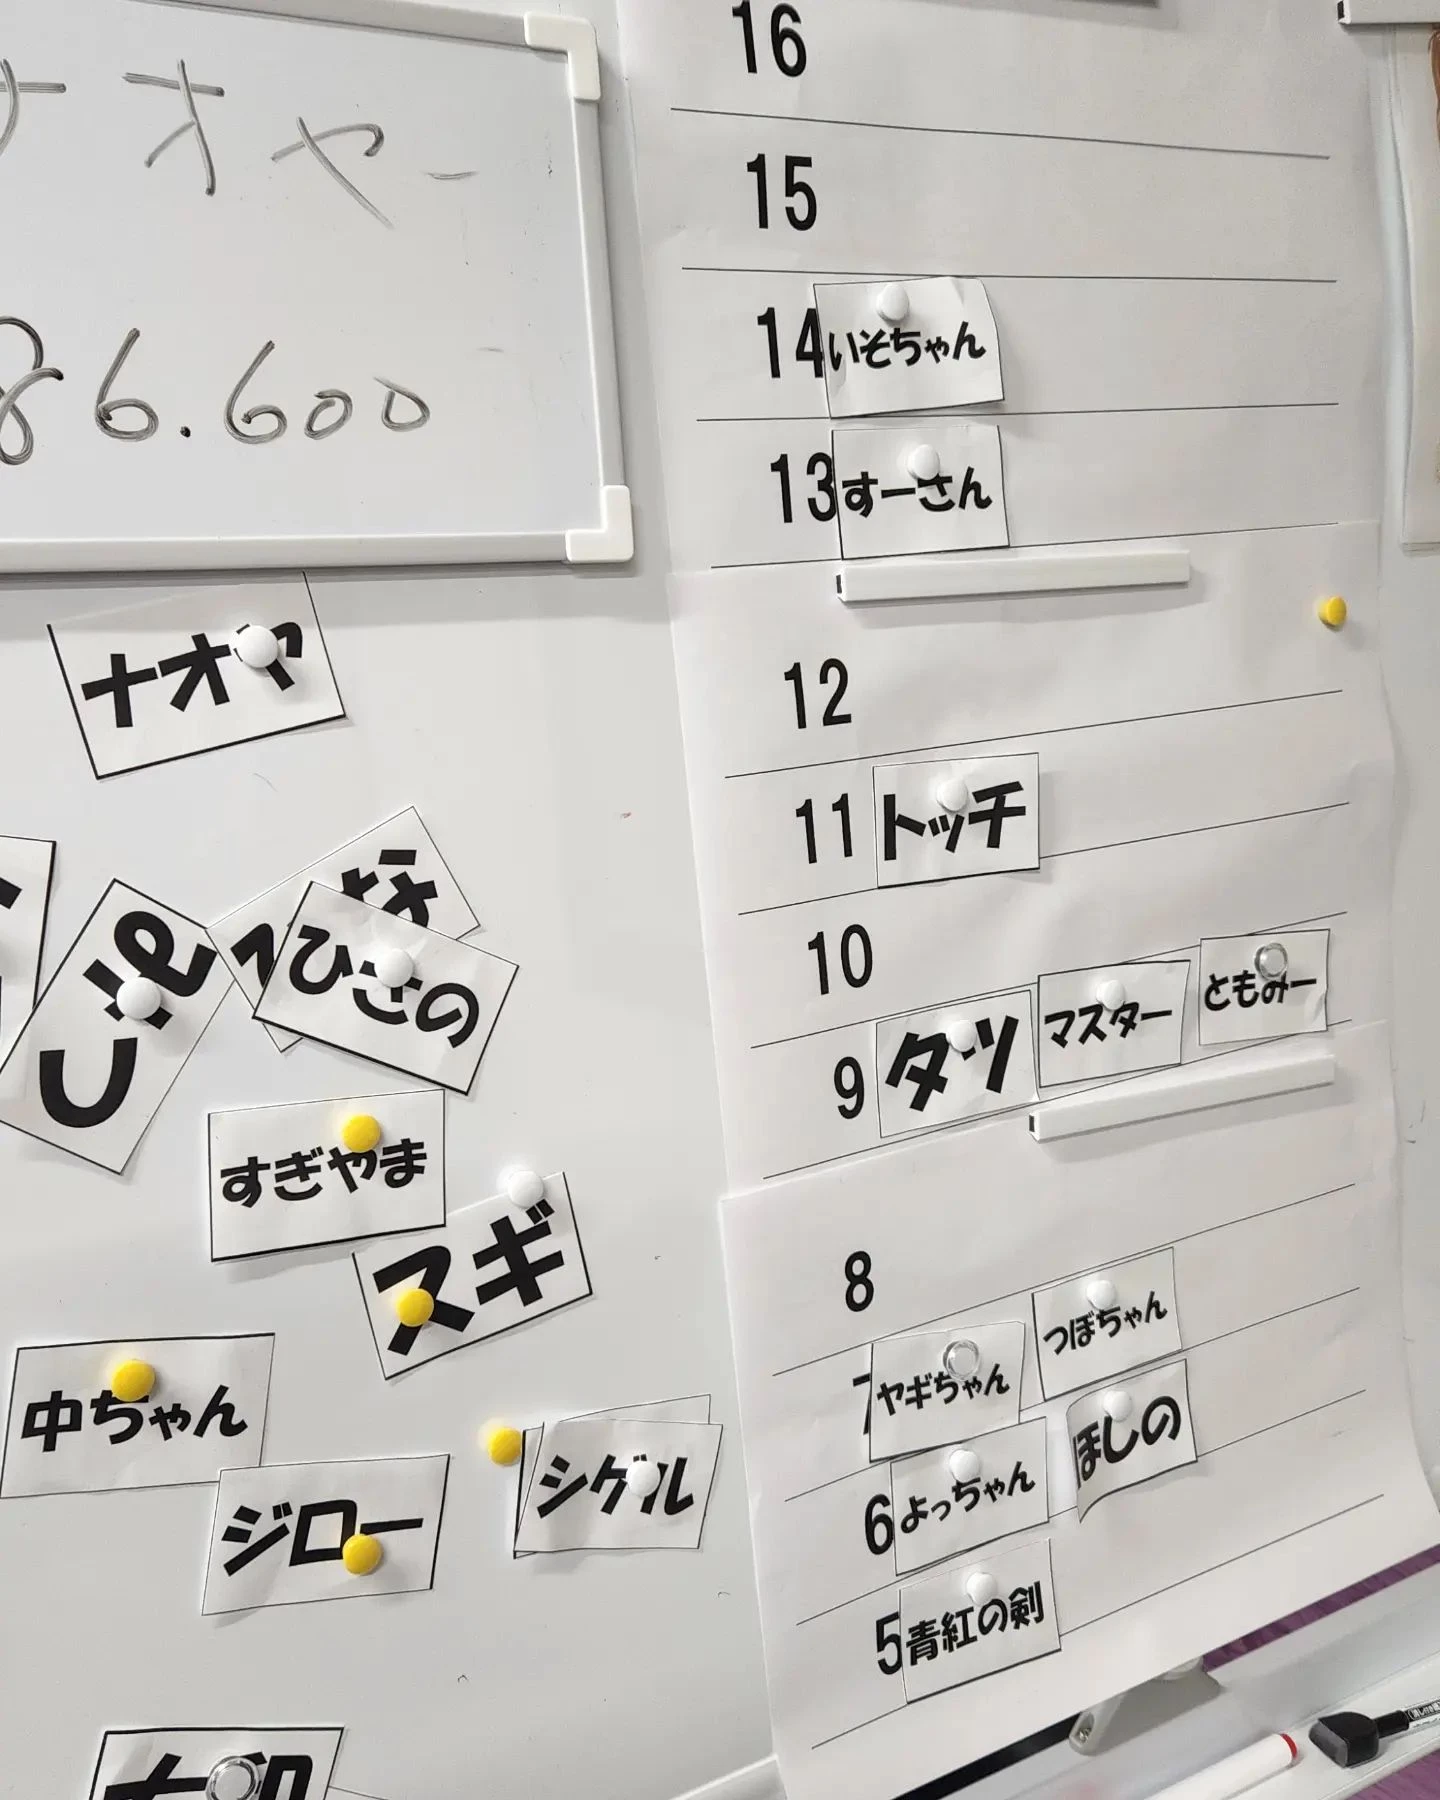 ナオヤ
86.600
ナオヤ
ひさの
すぎやま
スギ
中ちゃん
シゲル
ジロー
16
15
14 いそちゃん
13 すーさん
12
11 トッチ
10
9 タツ マスター ともみー
8
7 ヤギちゃん つぼちゃん
6 よっちゃん ほしの
5 青紅の剣